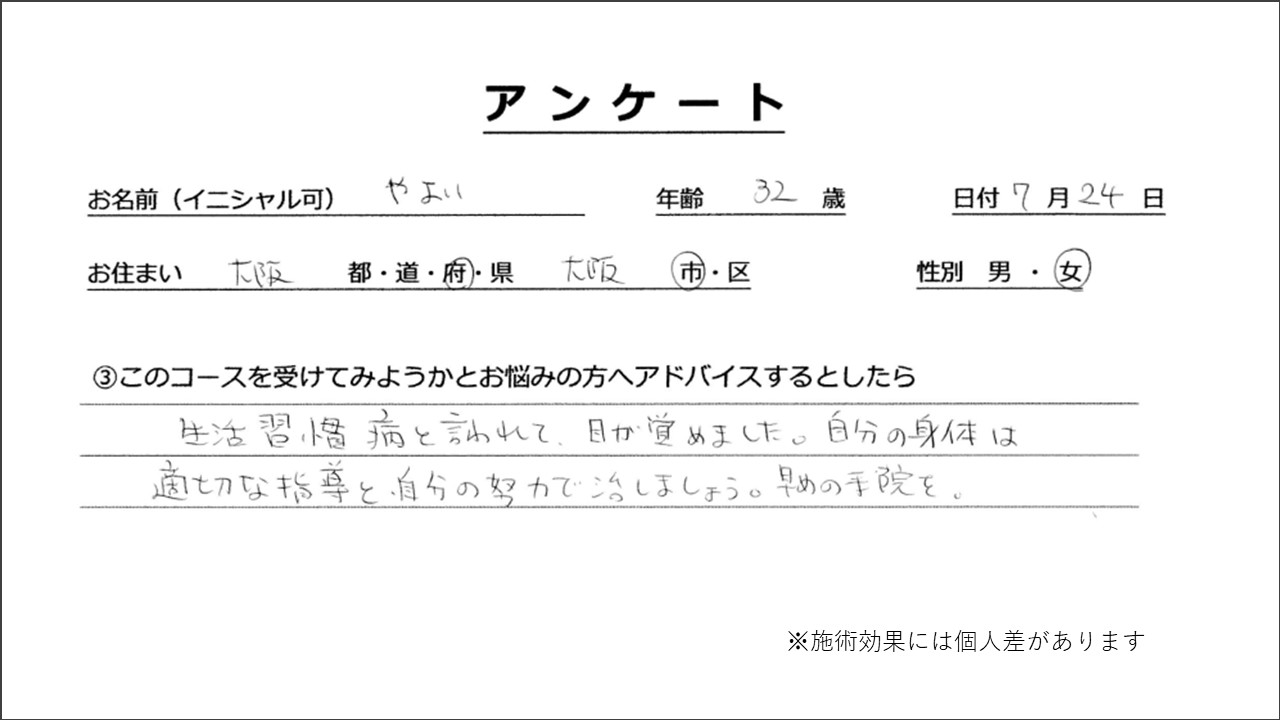 アンケート
お名前（イニシャル可） やよい 年齢 32 歳 日付 7 月 24 日
お住まい 大阪 都・道・府・県 大阪 市・区 性別 男・女
③このコースを受けてみようかとお悩みの方へアドバイスするとしたら
生活習慣病と言われて、目が覚めました。自分の身体は
適切な指導と、自分の努力で治しましょう。早めの手院を。
※施術効果には個人差があります